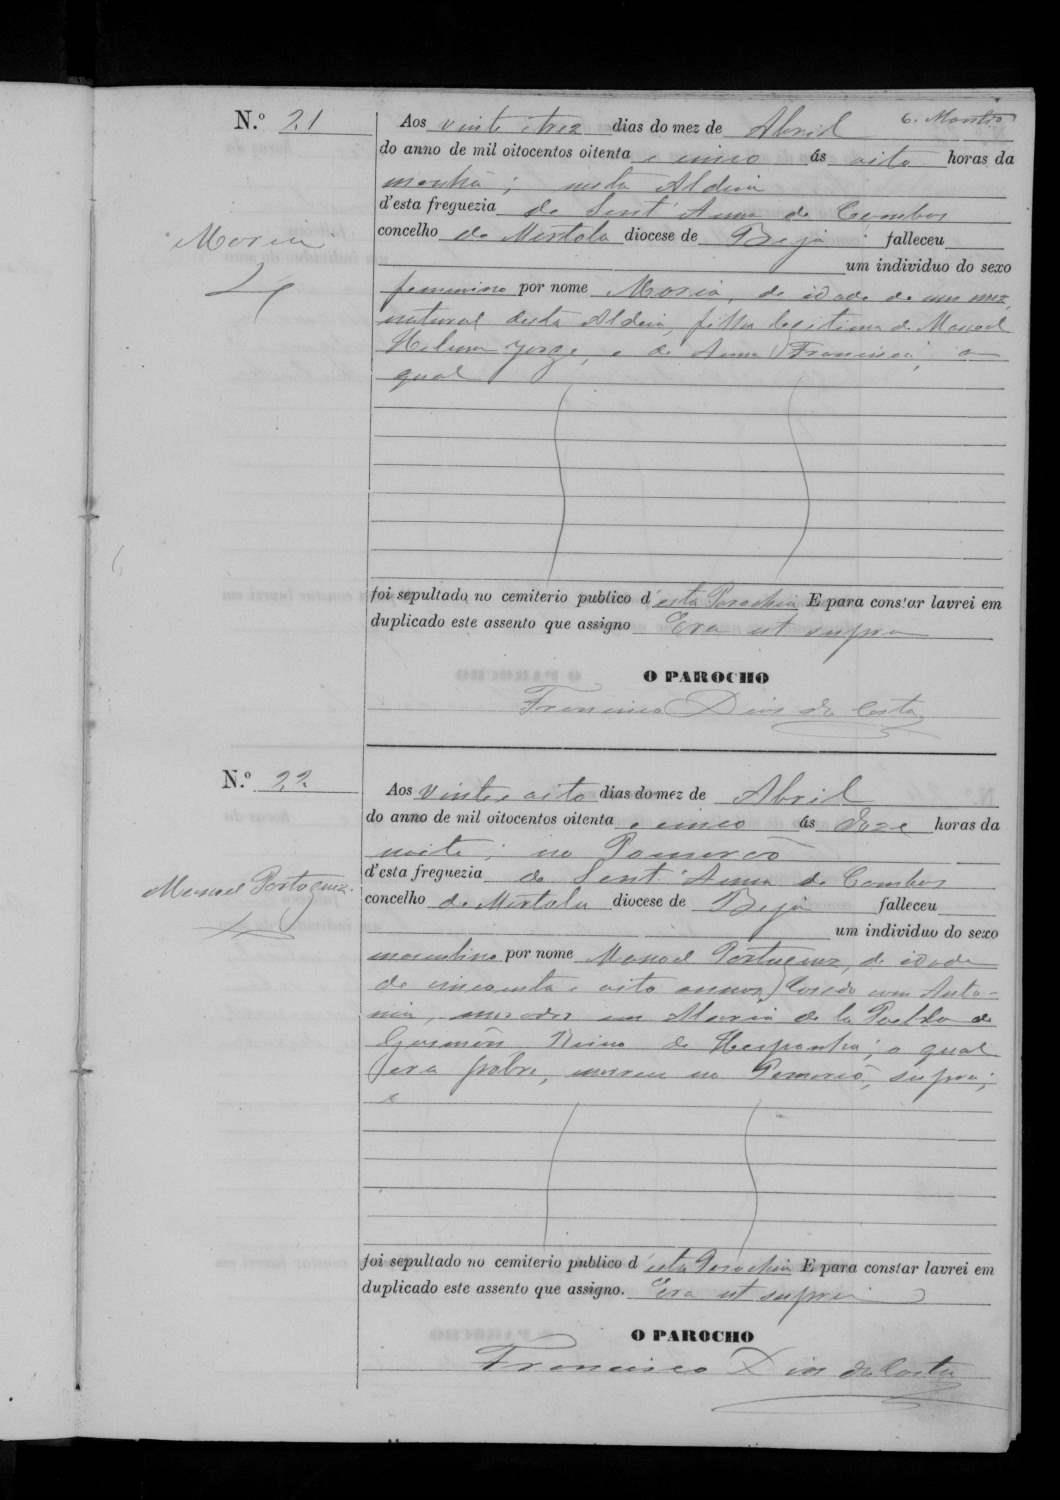 6. Monteiro
N.º 21
Aos vinte e trez dias do mez de Abril
do anno de mil oitocentos oitenta e cinco ás oito horas da
manhã; nesta Aldeia
d'esta freguezia de Sant'Anna de Cambas
concelho de Mertola diocese de Beja falleceu
Maria
um individuo do sexo
feminino por nome Maria, de idade de um mez,
natural desta Aldeia, filha legitima de Manoel
Jorge, e de Anna Francisca, a
qual
foi sepultado no cemiterio publico d'esta Parochia E para constar lavrei em
duplicado este assento que assigno Era ut supra
O PAROCHO
Francisco Dias da Costa
N.º 22
Aos vinte e oito dias do mez de Abril
do anno de mil oitocentos oitenta e cinco ás doze horas da
noite; no Pomarão
d'esta freguezia de Sant'Anna de Cambas
Manoel Portuguez.
concelho de Mertola diocese de Beja falleceu
um individuo do sexo
masculino por nome Manoel Portuguez, de idade
de cincoenta e oito annos, Casado com Anto-
nia, morador em de la Puebla de
Gusmán Reino de Hespanha; o qual
era pobre, morreu no Pomarão, supra;
e
foi sepultado no cemiterio publico d'esta Parochia E para constar lavrei em
duplicado este assento que assigno. Era ut supra
O PAROCHO
Francisco Dias da Costa